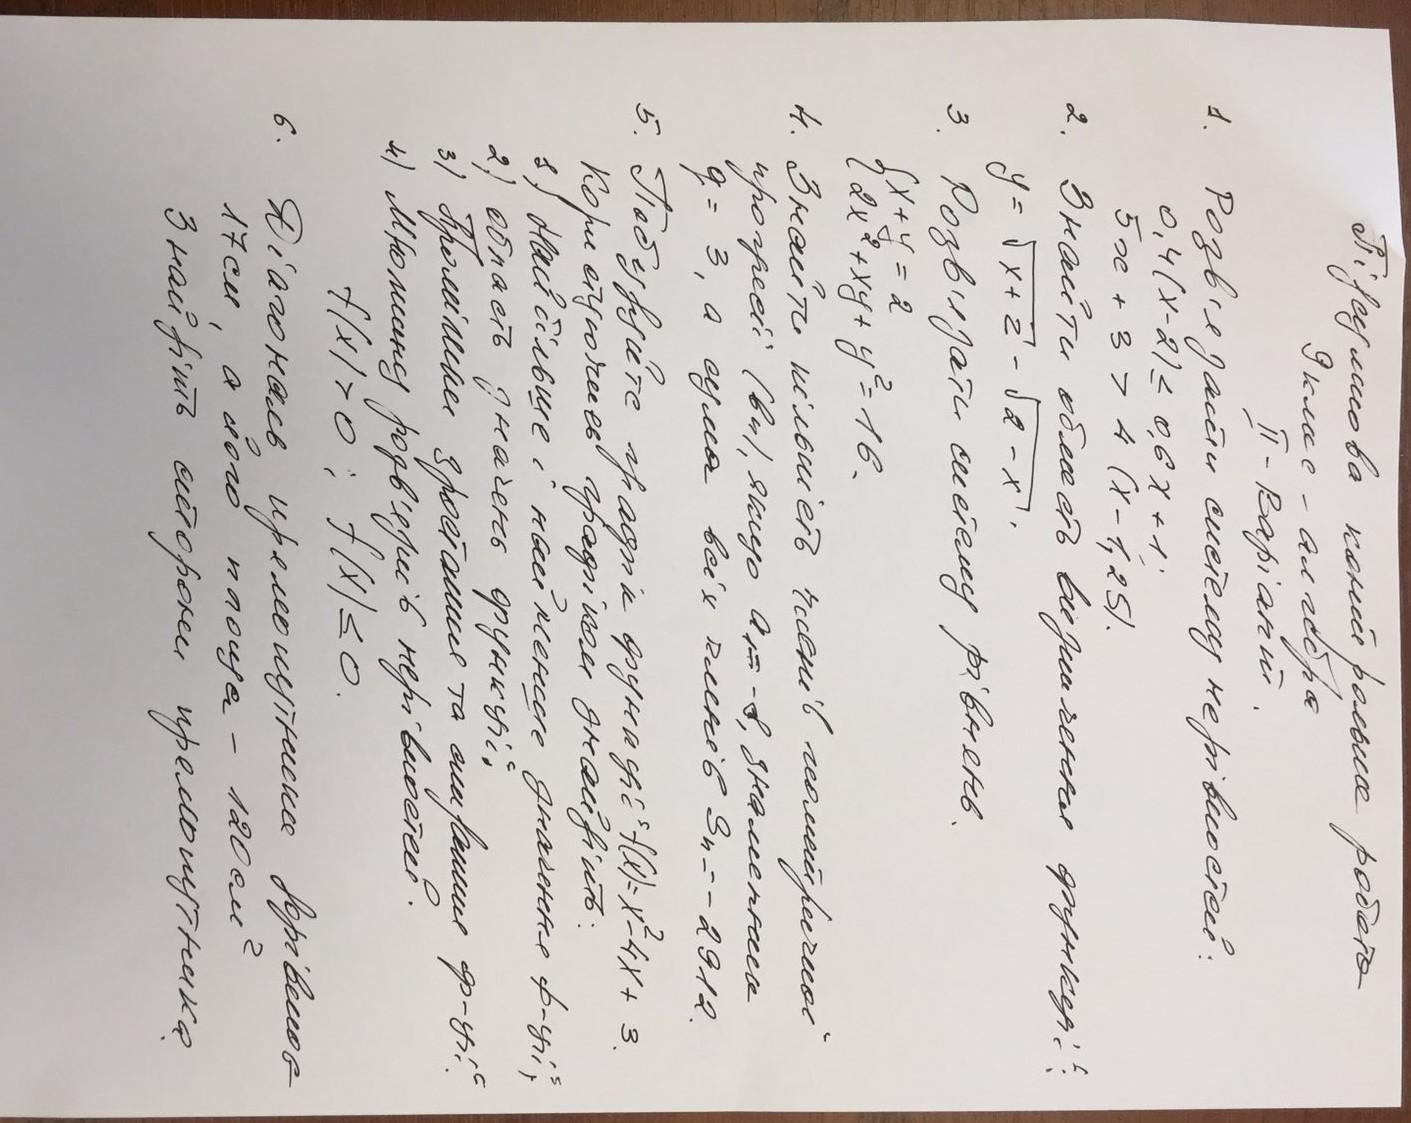 Підсумкова контрольна робота
9 клас - алгебра
II - Варіант.
1. Розв'язати систему нерівностей:
0,4(x-2) ≤ 0,6x + 1;
5x + 3 > 4(x - 1,25).
2. Знайти область визначення функції:
y = √x+2 - √2-x.
3. Розв'язати систему рівнянь.
{x + y = 2
{2x² + xy + y² = 16.
4. Знайти кількість членів геометричної
прогресії (bn), якщо знаменник
q = 3, а сума всіх членів Sn = - 2912.
5. Побудуйте графік функції f(x) = x² - 4x + 3.
Користуючись графіком знайдіть:
1) найбільше і найменше значення ф-ції;
2) область значень функції;
3) Проміжки зростання та спадання ф-ції.
4) Множину розв'язків нерівностей.
f(x) > 0; f(x) ≤ 0.
6. Діагональ прямокутника дорівнює
17см, а його площа - 120см²
Знайдіть сторони прямокутника.